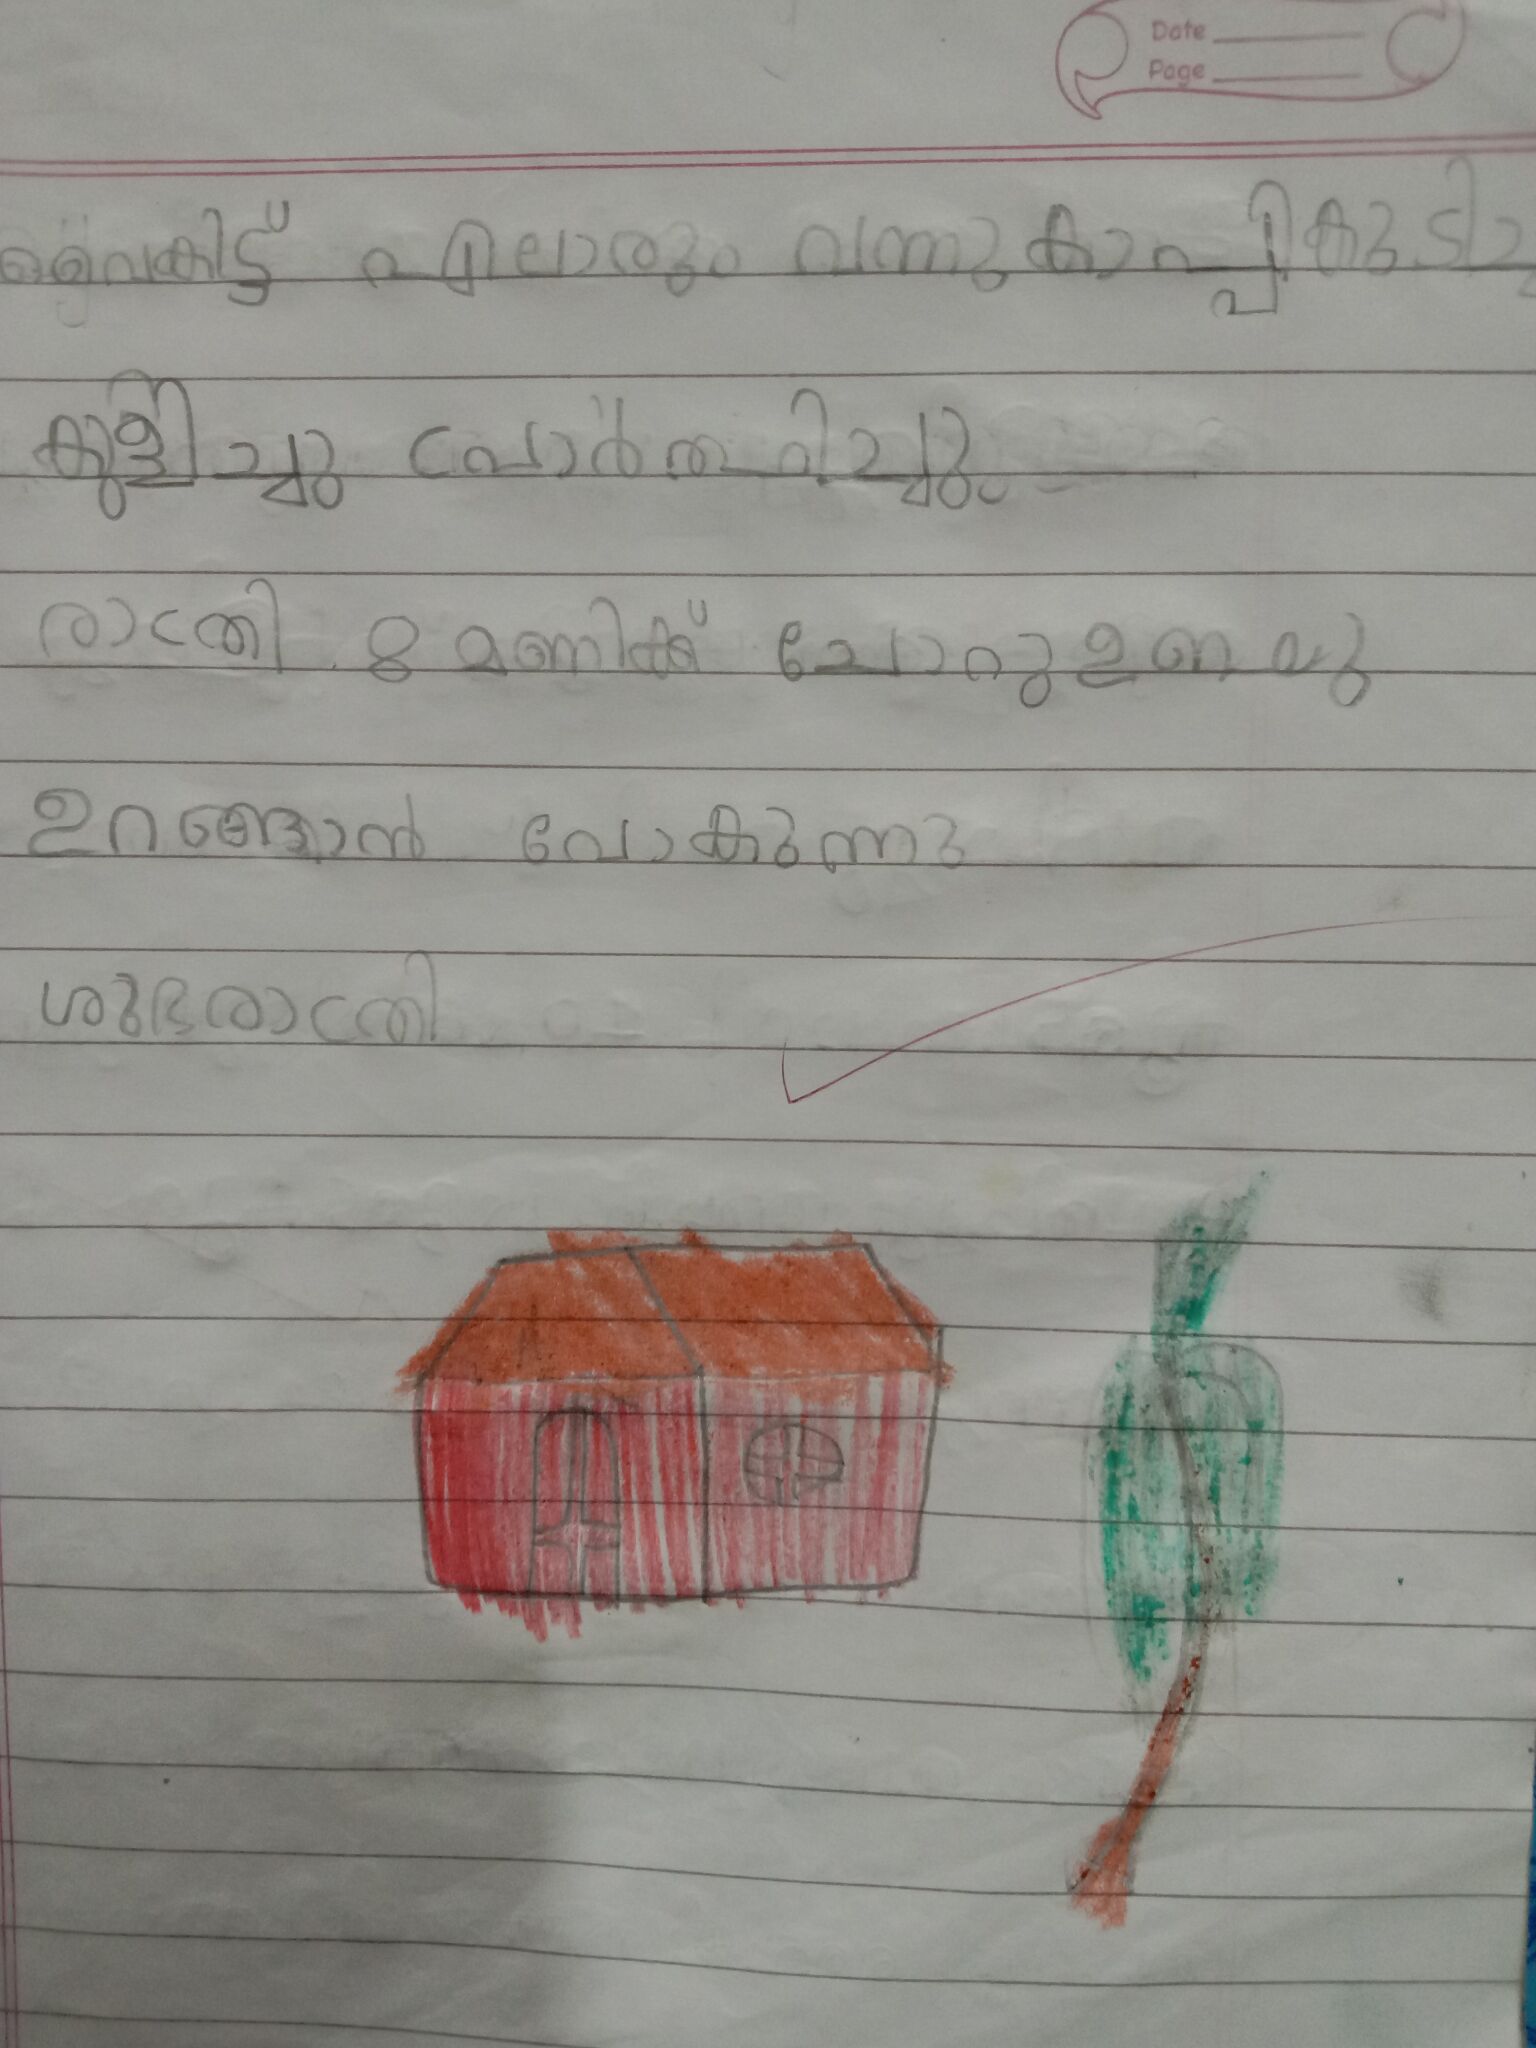 Date
Page
വൈകിട്ട് എല്ലാരും വന്നു കാപ്പി കുടിച്ചു
കുളിച്ചു പ്രാർത്ഥിച്ചു.
രാത്രി 8 മണിക്ക് ചോറു ഉണ്ടു
ഉറങ്ങാൻ പോകുന്നു
ശുഭരാത്രി